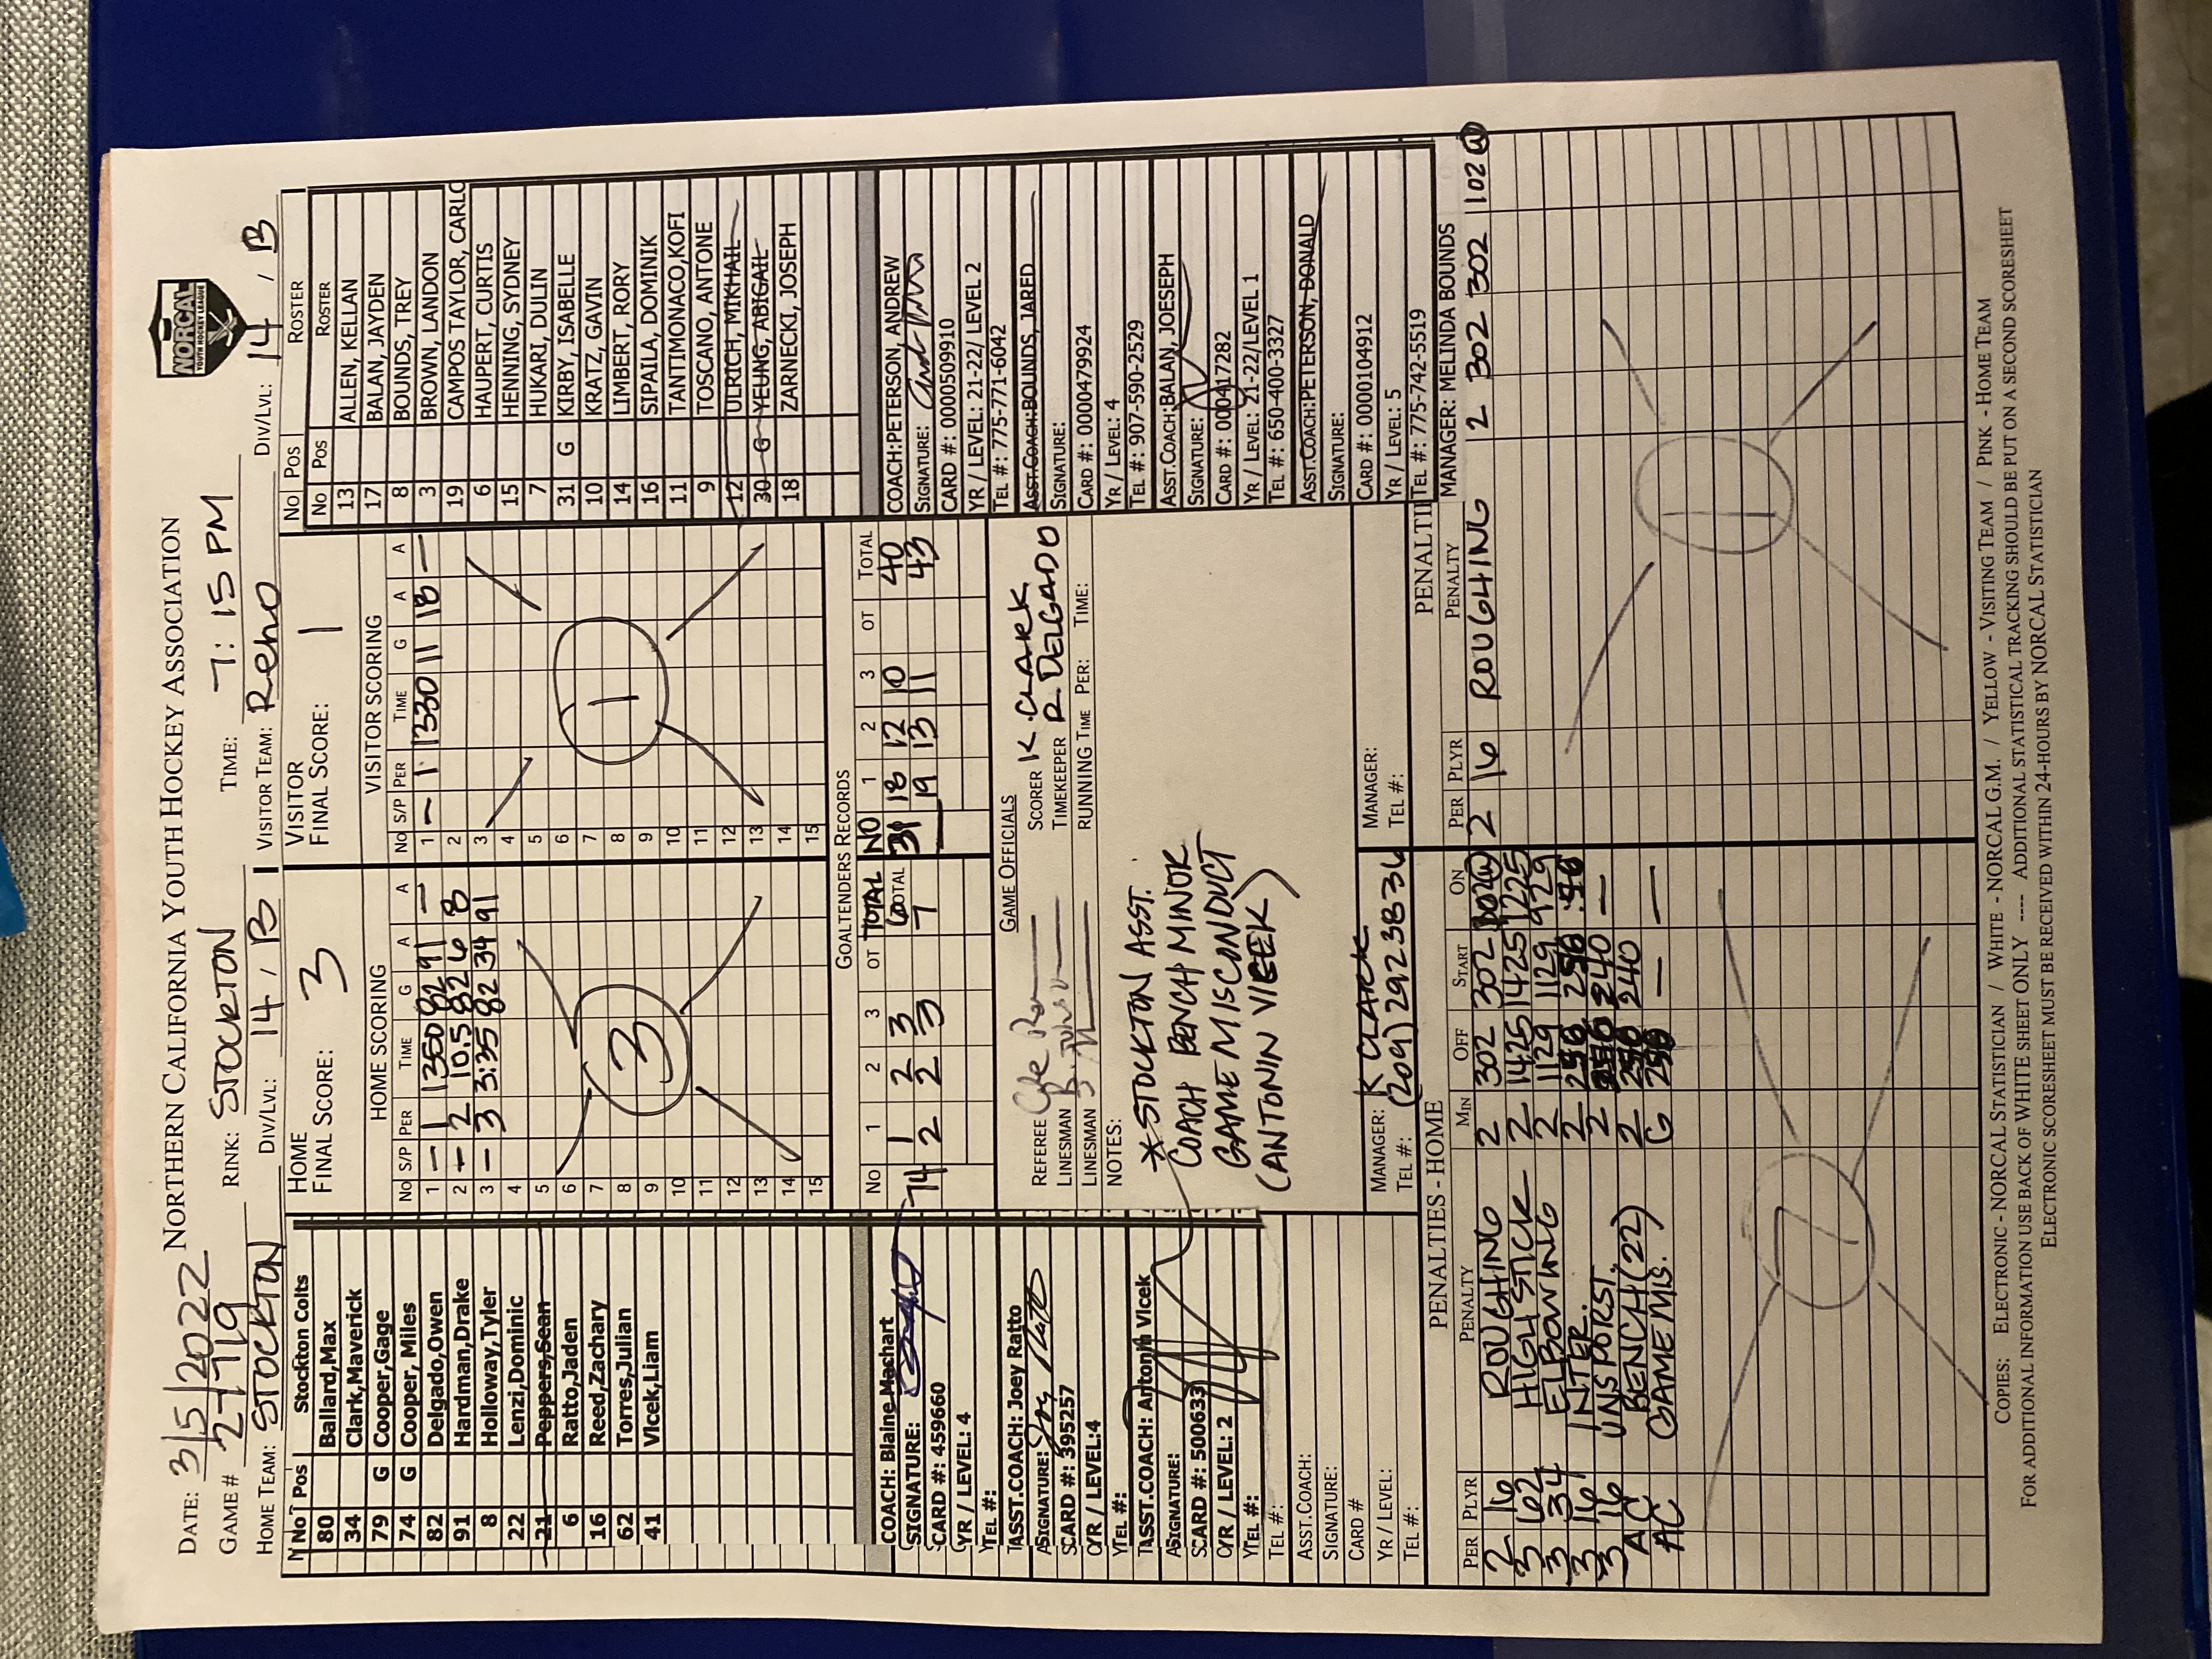 DATE: 3/5/2022 NORTHERN CALIFORNIA YOUTH HOCKEY ASSOCIATION
NORCAL
YOUTH HOCKEY LEAGUE
GAME # 2-719 RINK: STOCKTON TIME: 7:15 PM
HOME TEAM: STOCKTON DIV/LVL: 14 / B VISITOR TEAM: Reno DIV/LVL: 14 / B
No Pos Stockton Colts
80 Ballard,Max
34 Clark,Maverick
79 G Cooper,Gage
74 G Cooper, Miles
82 Delgado,Owen
91 Hardman,Drake
8 Holloway,Tyler
22 Lenzi,Dominic
21 Peppers,Sean
6 Ratto,Jaden
16 Reed,Zachary
62 Torres,Julian
41 Vlcek,Liam
HOME
FINAL SCORE: 3
HOME SCORING
No S/P PER TIME G A A
1 – 1 1350 82 91 –
2 – 2 10.5 82 6 8
3 – 3 3:35 82 34 91
4
5
6
7
8
9
10
11
12
13
14
15
3
VISITOR
FINAL SCORE: 1
VISITOR SCORING
No S/P PER TIME G A A
1 – 1 1330 11 18 –
2
3
4
5
6
7
8
9
10
11
12
13
14
15
1
No Pos ROSTER
No Pos ROSTER
13 ALLEN, KELLAN
17 BALAN, JAYDEN
8 BOUNDS, TREY
3 BROWN, LANDON
19 CAMPOS TAYLOR, CARLO
6 HAUPERT, CURTIS
15 HENNING, SYDNEY
7 HUKARI, DULIN
31 G KIRBY, ISABELLE
10 KRATZ, GAVIN
14 LIMBERT, RORY
16 SIPAILA, DOMINIK
11 TANTIMONACO,KOFI
9 TOSCANO, ANTONE
12 ULRICH, MIKHAIL
30 G YEUNG, ABIGAIL
18 ZARNECKI, JOSEPH
GOALTENDERS RECORDS
No 1 2 3 OT TOTAL NO 1 2 3 OT TOTAL
74 1 2 3 6 31 18 12 10 40
2 2 3 7 19 13 11 43
COACH: Blaine Machart
SIGNATURE:
CARD #: 459660
YR / LEVEL: 4
TEL #:
ASST.COACH: Joey Ratto
SIGNATURE: Joey Ratto
CARD #: 395257
YR / LEVEL:4
TEL #:
ASST.COACH: Antonin Vlcek
SIGNATURE:
CARD #: 500633
YR / LEVEL: 2
TEL #:
TEL #:
ASST.COACH:
SIGNATURE:
CARD #
YR / LEVEL:
TEL #:
GAME OFFICIALS
REFEREE SCORER K. CLARK
LINESMAN TIMEKEEPER R. DELGADO
LINESMAN RUNNING TIME PER: TIME:
NOTES:
*STOCKTON ASST.
COACH BENCH MINOR
GAME MISCONDUCT
(ANTONIN VLCEK)
MANAGER: K CLARK
TEL #: (209) 2923836
MANAGER:
TEL #:
COACH:PETERSON, ANDREW
SIGNATURE:
CARD #: 0000509910
YR / LEVEL: 21-22/ LEVEL 2
TEL #: 775-771-6042
ASST.COACH:BOUNDS, JARED
SIGNATURE:
CARD #: 0000479924
YR / LEVEL: 4
TEL #: 907-590-2529
ASST.COACH:BALAN, JOESEPH
SIGNATURE:
CARD #: 000417282
YR / LEVEL: 21-22/LEVEL 1
TEL #: 650-400-3327
ASST.COACH:PETERSON, DONALD
SIGNATURE:
CARD #: 0000104912
YR / LEVEL: 5
TEL #: 775-742-5519
MANAGER: MELINDA BOUNDS
PENALTIES - HOME
PER PLYR PENALTY MIN OFF START ON
2 16 ROUGHING 2 302 302 102 W
3 62 HIGH STICK 2 1425 1425 1225
3 34 ELBOWING 2 1129 1129 929
3 16 INTER. 2 256 256 :56
3 16 UNSPORST. 2 240
AC BENCH (22) 2 240 –
AC GAME MIS. 6 – –
7
PENALTI
PER PLYR PENALTY
2 16 ROUGHING 2 302 302 102 W
1
COPIES: ELECTRONIC - NORCAL STATISTICIAN / WHITE - NORCAL G.M. / YELLOW - VISITING TEAM / PINK - HOME TEAM
FOR ADDITIONAL INFORMATION USE BACK OF WHITE SHEET ONLY ---- ADDITIONAL STATISTICAL TRACKING SHOULD BE PUT ON A SECOND SCORESHEET
ELECTRONIC SCORESHEET MUST BE RECEIVED WITHIN 24-HOURS BY NORCAL STATISTICIAN